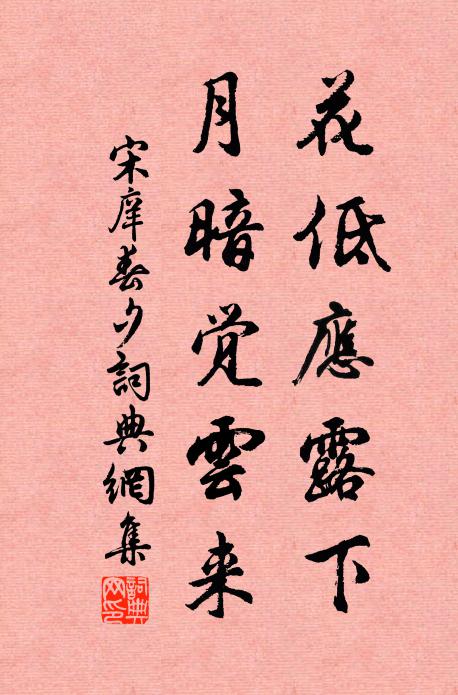 花低應露下
月暗覚雲来
宋庠春夕詞典網集
詞典網印